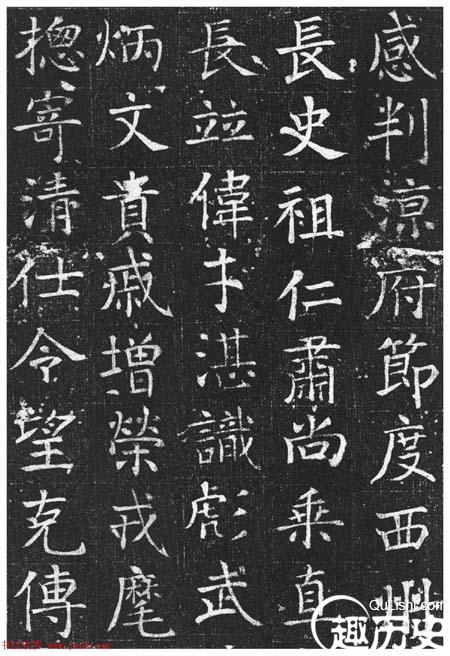 感判涼府節度西州
長史祖仁肅尚乘直
長並偉才湛識彪武
炳文貴戚增榮戎麾
揔寄清仕令望克傳
QuLishi.com
趣历史